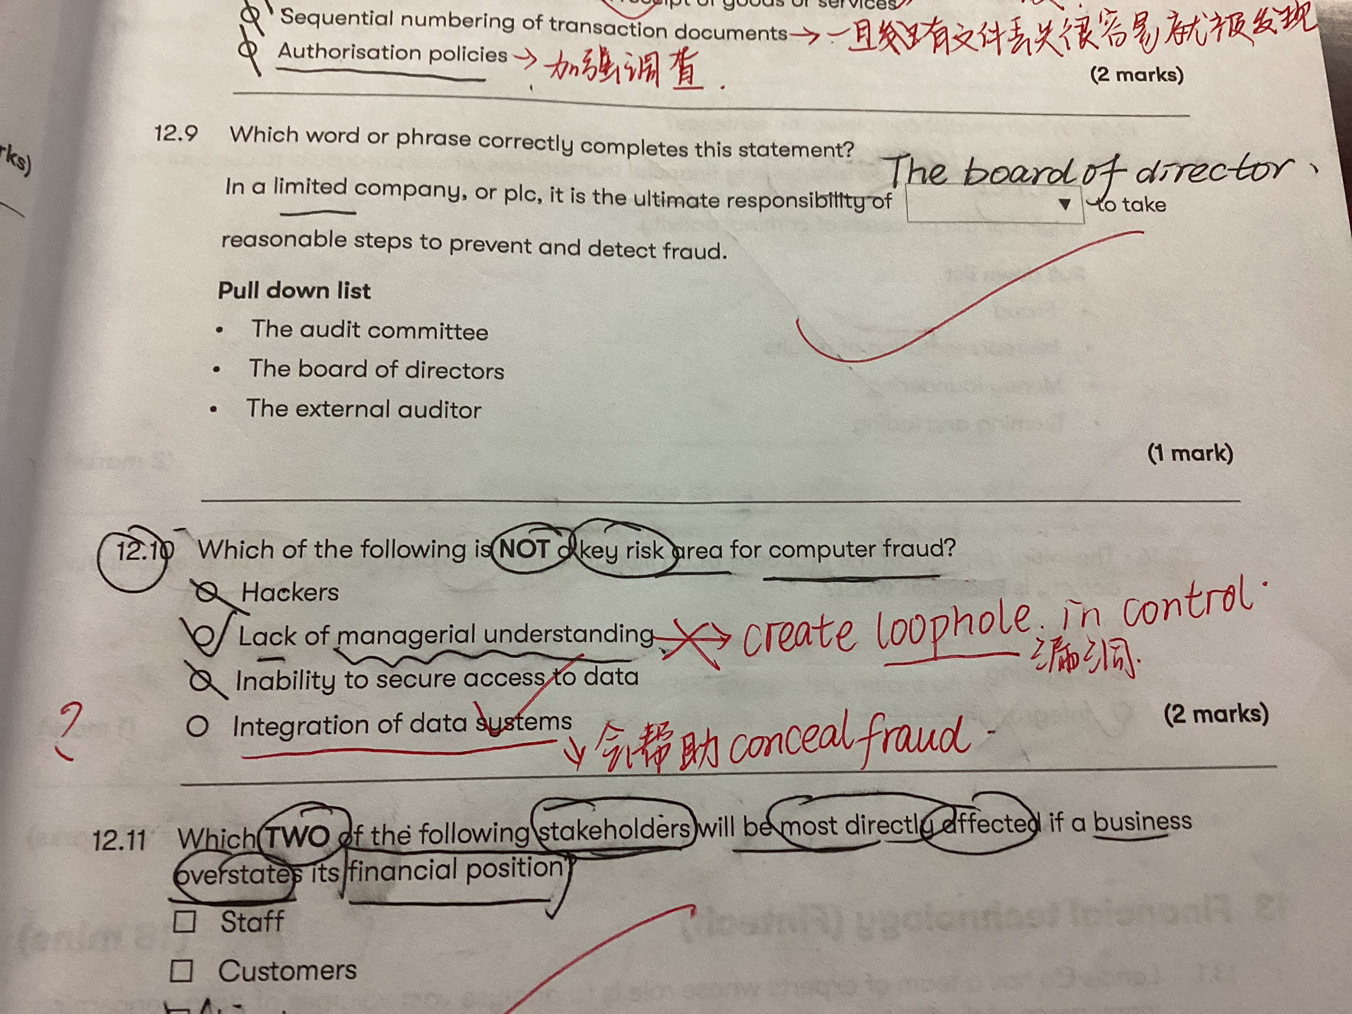 of goods or services
Sequential numbering of transaction documents → 一旦发现有文件丢失很容易就被发现
Authorisation policies → 加强调查.
(2 marks)
rks)
12.9 Which word or phrase correctly completes this statement?
The board of director
In a limited company, or plc, it is the ultimate responsibility of ▼ to take
reasonable steps to prevent and detect fraud.
Pull down list
• The audit committee
• The board of directors
• The external auditor
(1 mark)
12.10 Which of the following is NOT a key risk area for computer fraud?
Hackers
Lack of managerial understanding → create loophole in control.
漏洞.
Inability to secure access to data
? Integration of data systems
(2 marks)
会帮助 conceal fraud
12.11 Which TWO of the following stakeholders will be most directly affected if a business
overstates its financial position?
Staff
Customers